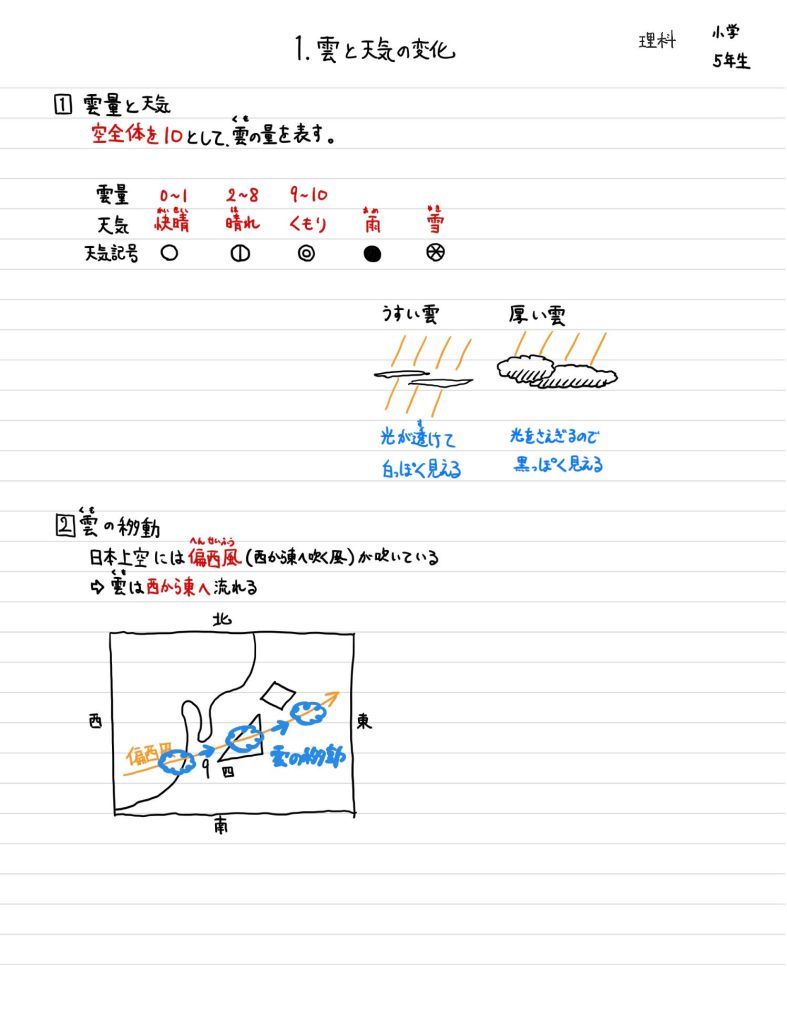 1. 雲と天気の変化
理科
小学
5年生
1 雲量と天気
くも
空全体を10として、雲の量を表す。
雲量 0~1 2~8 9~10
かいせい は あめ ゆき
天気 快晴 晴れ くもり 雨 雪
天気記号
うすい雲 厚い雲
す
光が透けて 光をさえぎるので
白っぽく見える 黒っぽく見える
くも
2 雲の移動
へんせいふう
日本上空には偏西風(西から東へ吹く風)が吹いている
くも
⇨ 雲は西から東へ流れる
北
西
東
偏西風
雲の移動
九 四
南